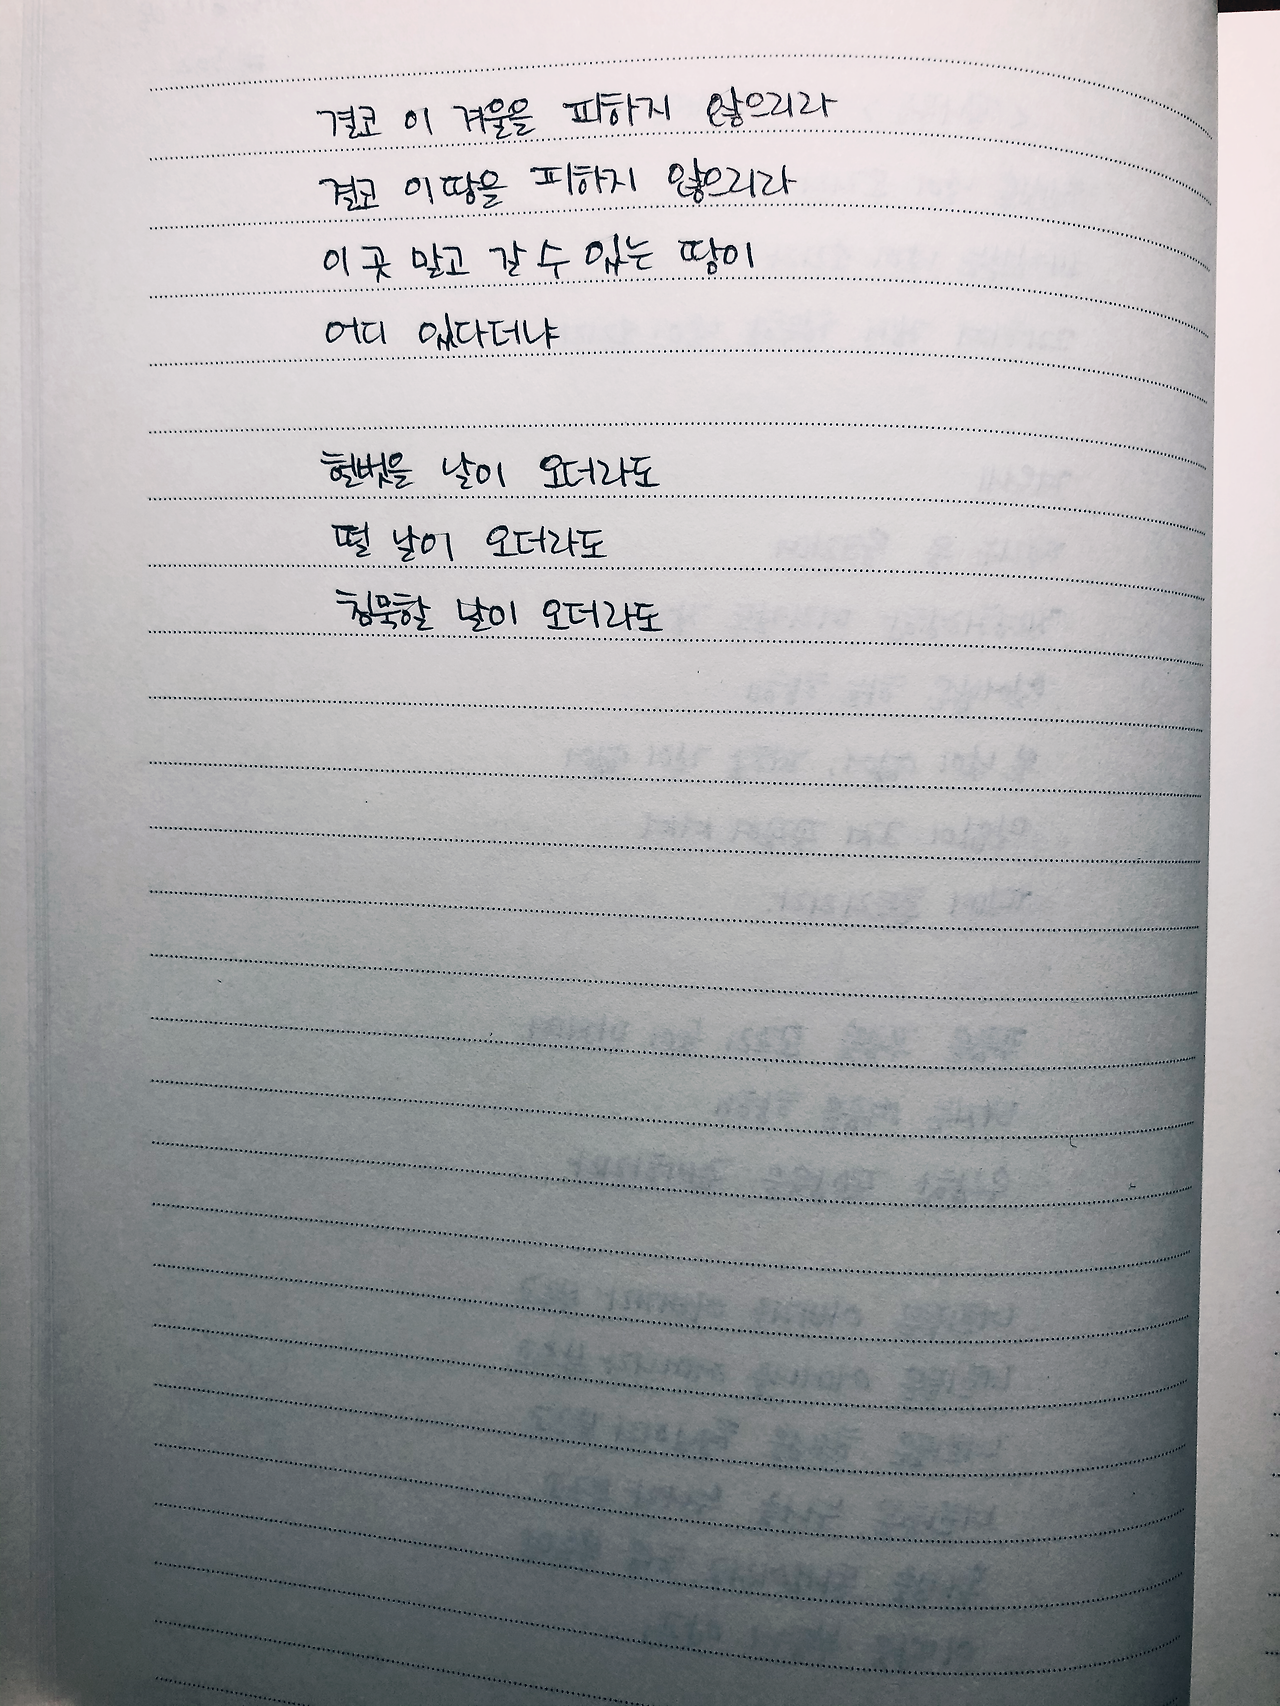 결코 이 겨울을 피하지 않으리라
결코 이 땅을 피하지 않으리라
이 곳 말고 갈 수 있는 땅이
어디 있다더냐
헐벗을 날이 오더라도
떨 날이 오더라도
침묵할 날이 오더라도